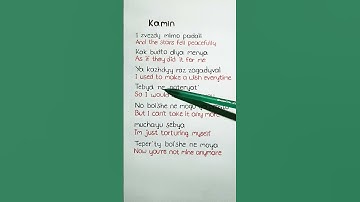 Kamin
I zvezdy mimo padali
And the stars fell peacefully
Kak budto dlya menya
As if they did it for me
Ya kazhdyy raz zagadyval
I used to make a wish everytime
Tebya ne poteryat'
So I would
No bol'she ne mogu
But I can't take it any more
muchayu sebya
I'm just torturing myself
Teper' ty bol'she ne moya
Now you're not mine anymore